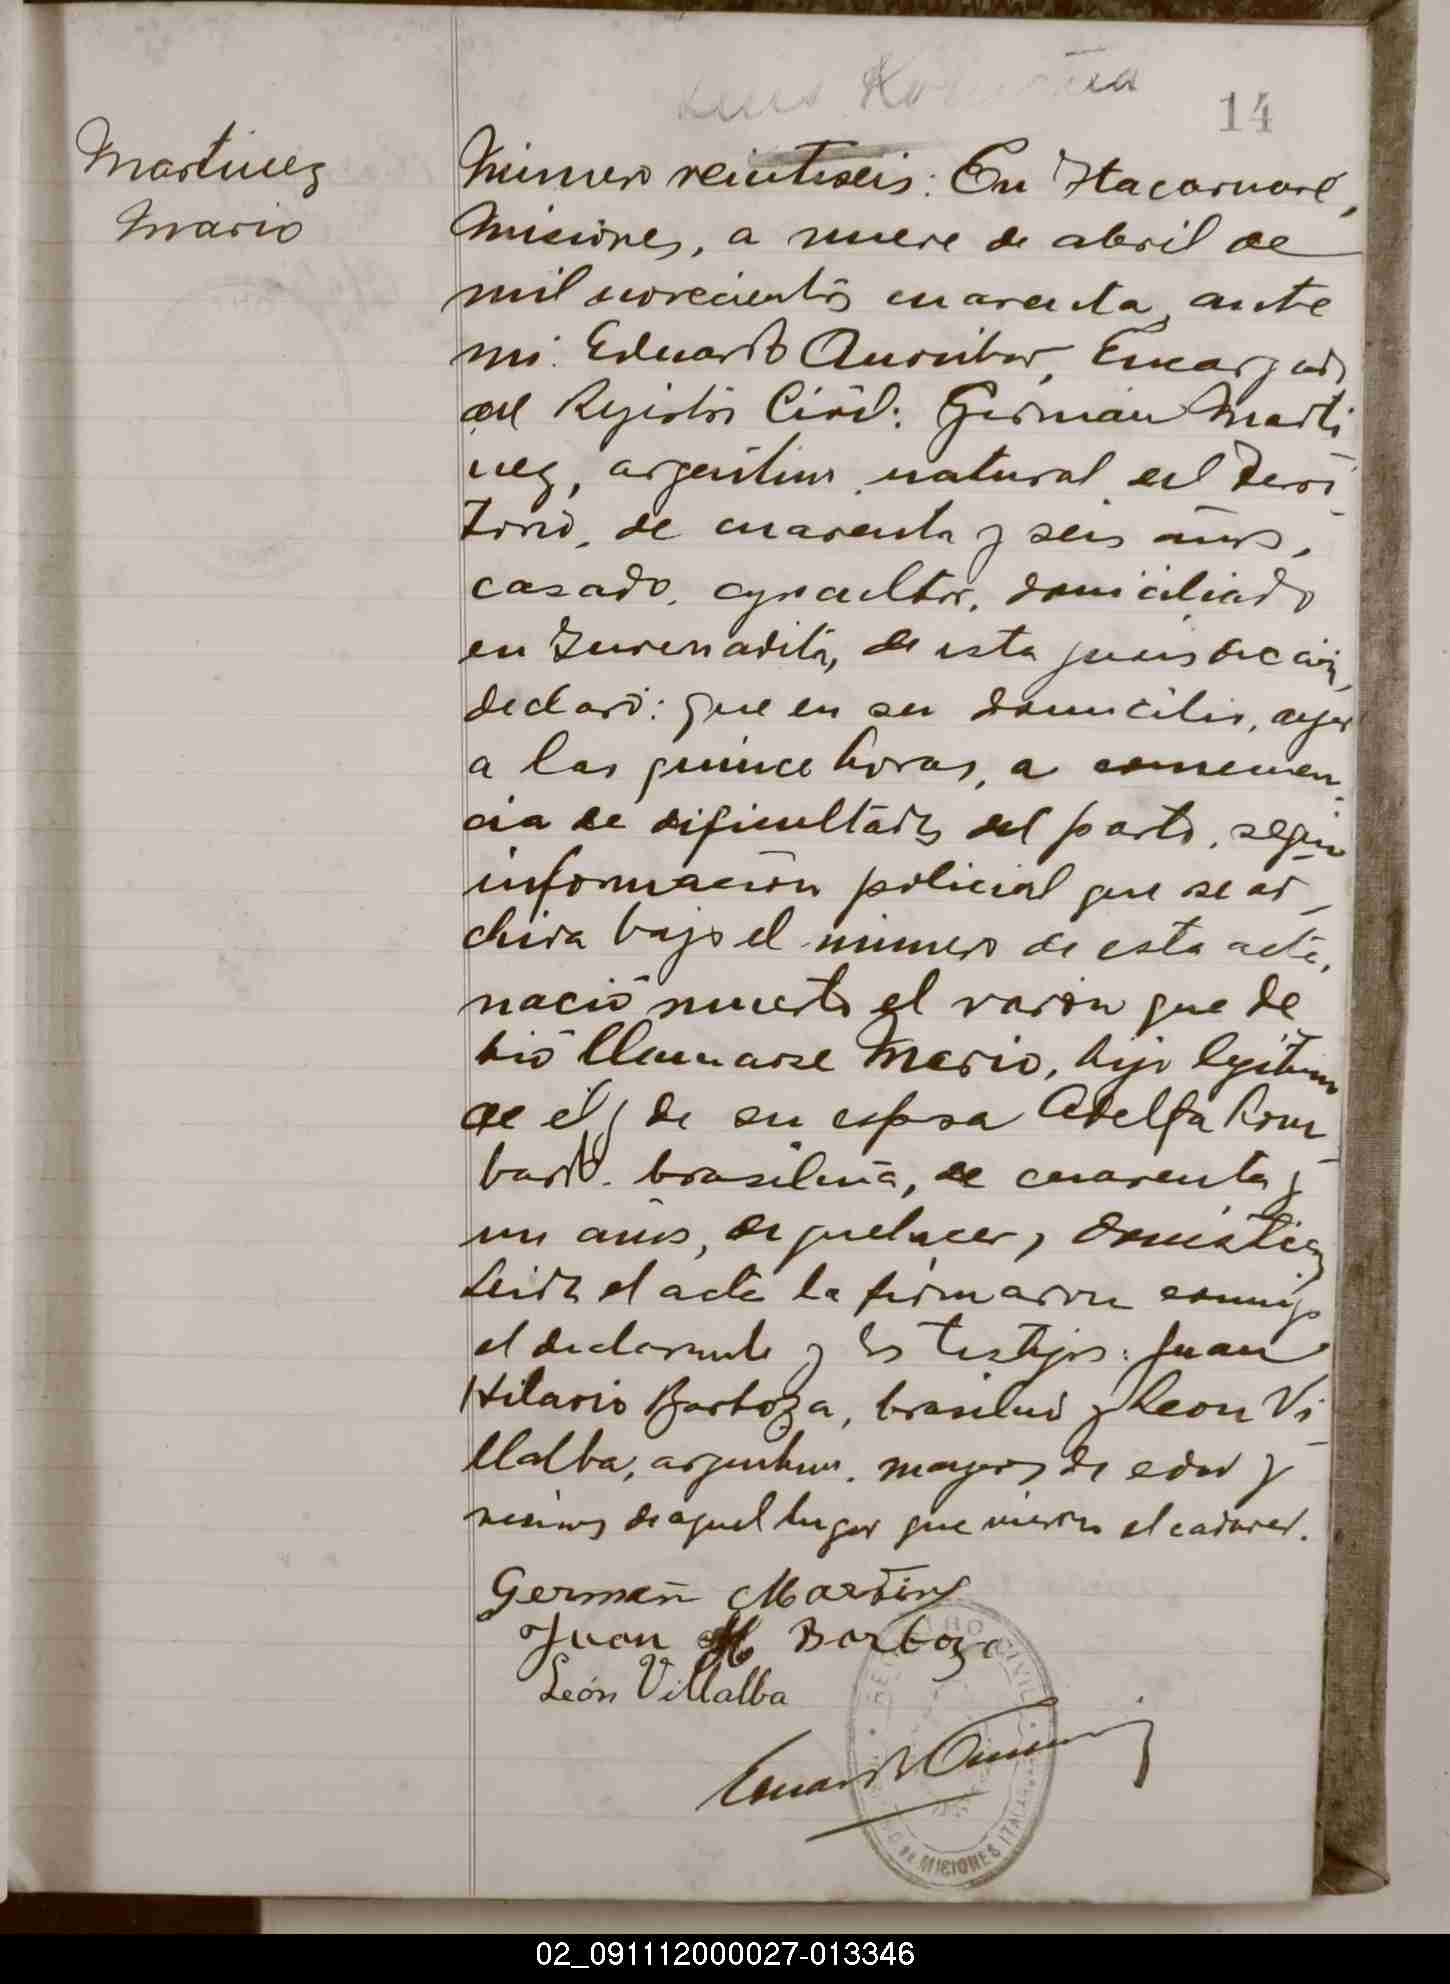 14
Martinez
Mario
Número veintiseis: En Itacaruaré,
Misiones, a nueve de abril de
mil novecientos cuarenta, ante
mi: Eduardo Encargado
del Registro Civil: Germán Marti
nez, argentino, natural del Terri
torio, de cuarenta y seis años,
casado, agricultor, domiciliado
en de esta jurisdicción,
declaró: que en su domicilio, ayer
a las quince horas, a consecuen
cia de dificultades del parto, según
información policial que se ar
chiva bajo el número de esta acta,
nació muerto el varón que de
bió llamarse Mario, hijo legítimo
de él y de su esposa Adelfa
brasileña, de cuarenta y
un años, de quehaceres domésticos
Leida el acta la firmaron conmigo
el declarante y los testigos: Juan
Hilario Barboza, brasilero y Leon Vi
llalba, argentino, mayores de edad y
vecinos de aquel lugar que vieron el cadaver.
Germán Martinez
Juan H Barboza
León Villalba
REGISTRO CIVIL
DE MISIONES
02_091112000027-013346